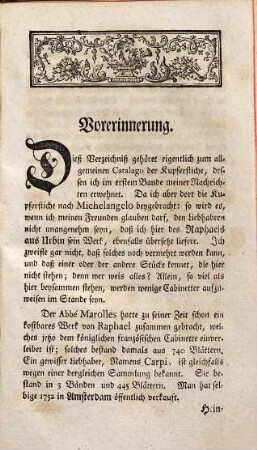 Vorerinnerung.
Dieß Verzeichniß gehöret eigentlich zum all-
gemeinen Catalago der Kupferstiche, des-
sen ich im erstem Bande meiner Nachrich-
ten erwehnet. Da ich aber dort die Ku-
pferstiche nach Michelangelo beygebracht: so wird es,
wenn ich meinen Freunden glauben darf, den liebhabern
nicht unangenehm seyn, daß ich hier des Raphaels
aus Urbin sein Werk, ebenfalls übersetzt liefere. Ich
zweifle gar nicht, daß solches noch vermehret werden kann,
und daß einer oder der andere Stücke kennet, die hier
nicht stehen; denn wer weis alles? Allein, so viel als
hier beysammen stehet, werden wenige Cabinetter aufzu-
weisen im Stande seyn.
Der Abbé Marolles hatte zu seiner Zeit schon ein
kostbares Werk von Raphael zusammen gebracht, wel-
ches jetzo dem königlichen französischen Cabinette einver-
leibet ist; solches bestand damals aus 740 Blättern.
Ein gewisser liebhaber, Namens Carpi, ist gleichfalls
wegen einer dergleichen Sammlung bekannt. Sie be-
stand in 3 Bänden und 445 Blättern. Man hat sel-
bige 1752 in Amsterdam öffentlich verkauft.
Hin-